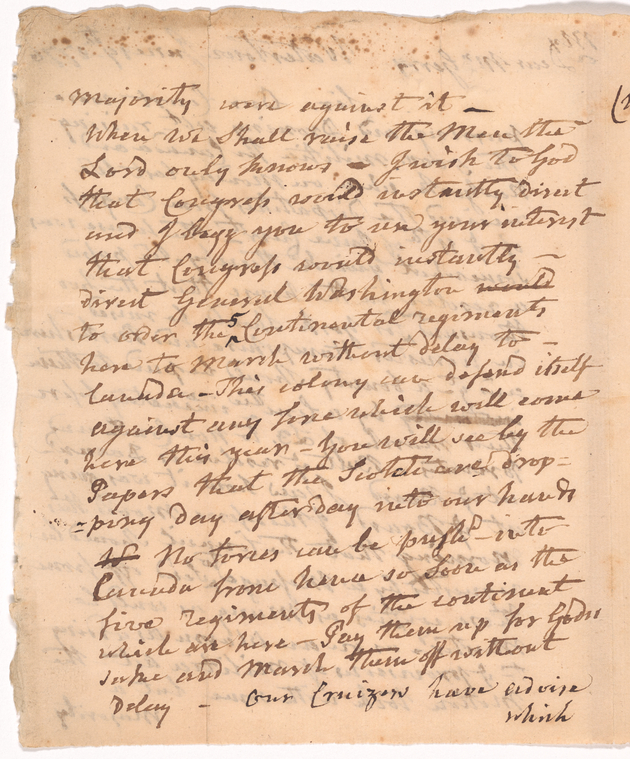 Majority were against it —
When we Shall raise the Men the
Lord only knows. — I wish to God
that Congress would instantly direct
and I begg you to use your interest
that Congress would instantly —
direct General Washington would
to order the 5 Continental regiments
here to March without delay to —
Canada – This colony can defend itself
against any force which will come
here this year – You will see by the
Papers that the Scotch are drop=
=ping day after day into our hands
If No forces can be push'd into
Canada from hence so soon as the
five regiments of the continent
which are here – Pay them up for Gods
sake and March them off without
Delay – Our Cruizers have advise
which